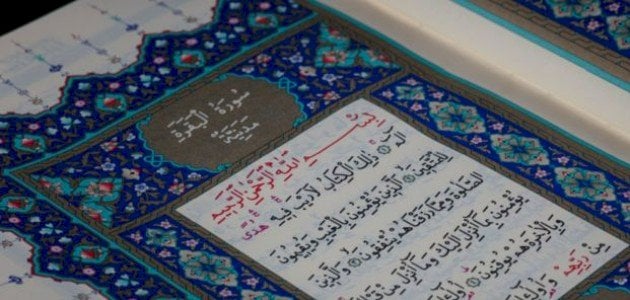 سُورَةُ الْبَقَرَةِ
مَدَنِيَّةٌ
بِسْمِ اللّٰهِ الرَّحْمٰنِ الرَّحِيمِ
الٓمٓ ۝ ذٰلِكَ الْكِتَابُ لَا رَيْبَ فِيهِ هُدًى
لِلْمُتَّقِينَ ۝ الَّذِينَ يُؤْمِنُونَ بِالْغَيْبِ وَيُقِيمُونَ
الصَّلٰوةَ وَمِمَّا رَزَقْنَاهُمْ يُنْفِقُونَ ۝ وَالَّذِينَ
يُؤْمِنُونَ بِمَا أُنْزِلَ إِلَيْكَ وَمَا أُنْزِلَ مِنْ
وَبِالْاٰخِرَةِ هُمْ يُوقِنُونَ ۝
مِنْ رَبِّهِمْ